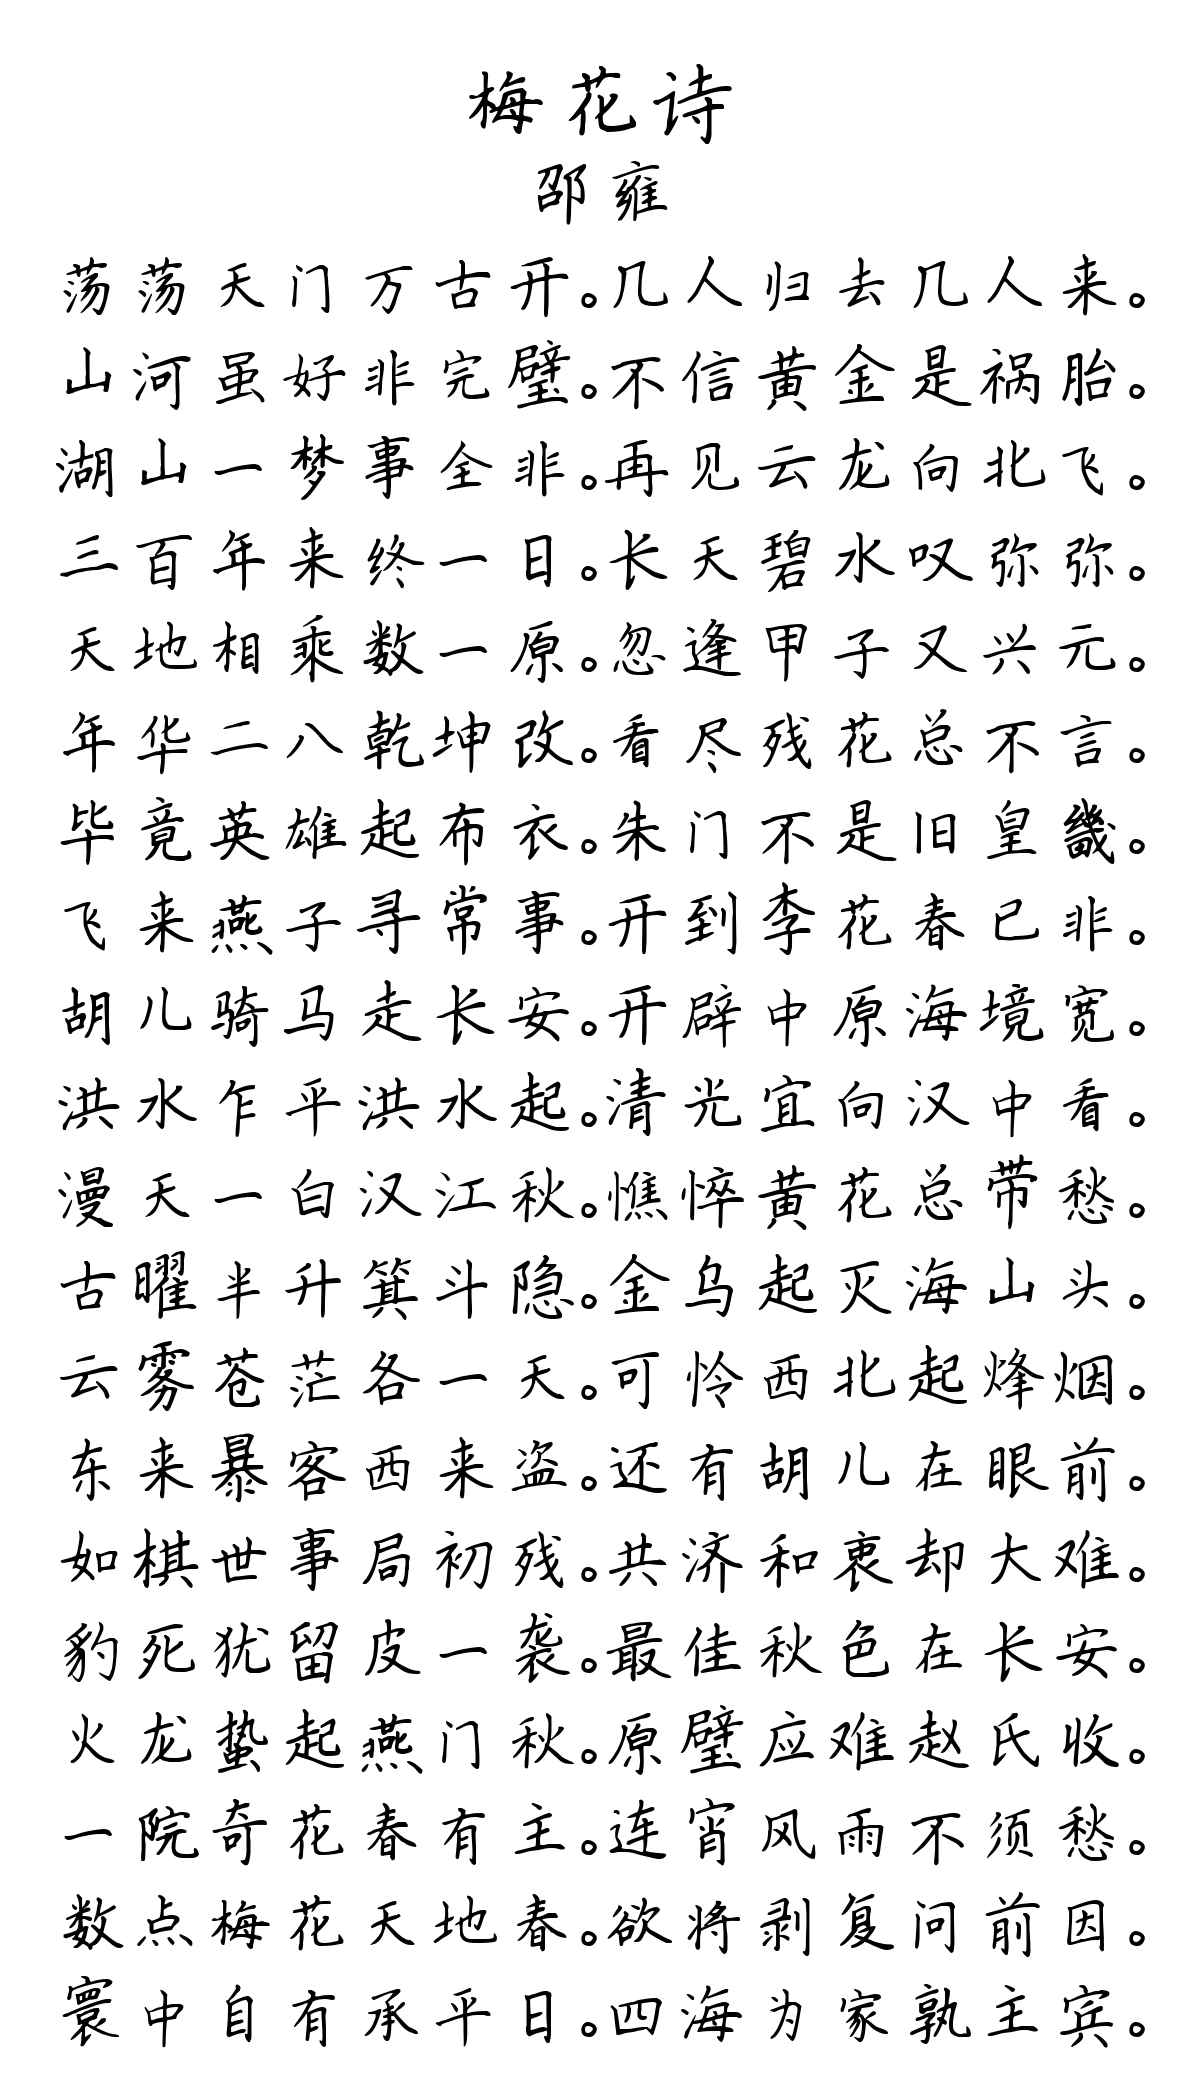 梅花诗
邵雍
荡荡天门万古开。几人归去几人来。
山河虽好非完璧。不信黄金是祸胎。
湖山一梦事全非。再见云龙向北飞。
三百年来终一日。长天碧水叹弥弥。
天地相乘数一原。忽逢甲子又兴元。
年华二八乾坤改。看尽残花总不言。
毕竟英雄起布衣。朱门不是旧皇畿。
飞来燕子寻常事。开到李花春已非。
胡儿骑马走长安。开辟中原海境宽。
洪水乍平洪水起。清光宜向汉中看。
漫天一白汉江秋。憔悴黄花总带愁。
古曜半升箕斗隐。金乌起灭海山头。
云雾苍茫各一天。可怜西北起烽烟。
东来暴客西来盗。还有胡儿在眼前。
如棋世事局初残。共济和衷却大难。
豹死犹留皮一袭。最佳秋色在长安。
火龙蛰起燕门秋。原璧应难赵氏收。
一院奇花春有主。连宵风雨不须愁。
数点梅花天地春。欲将剥复问前因。
寰中自有承平日。四海为家孰主宾。